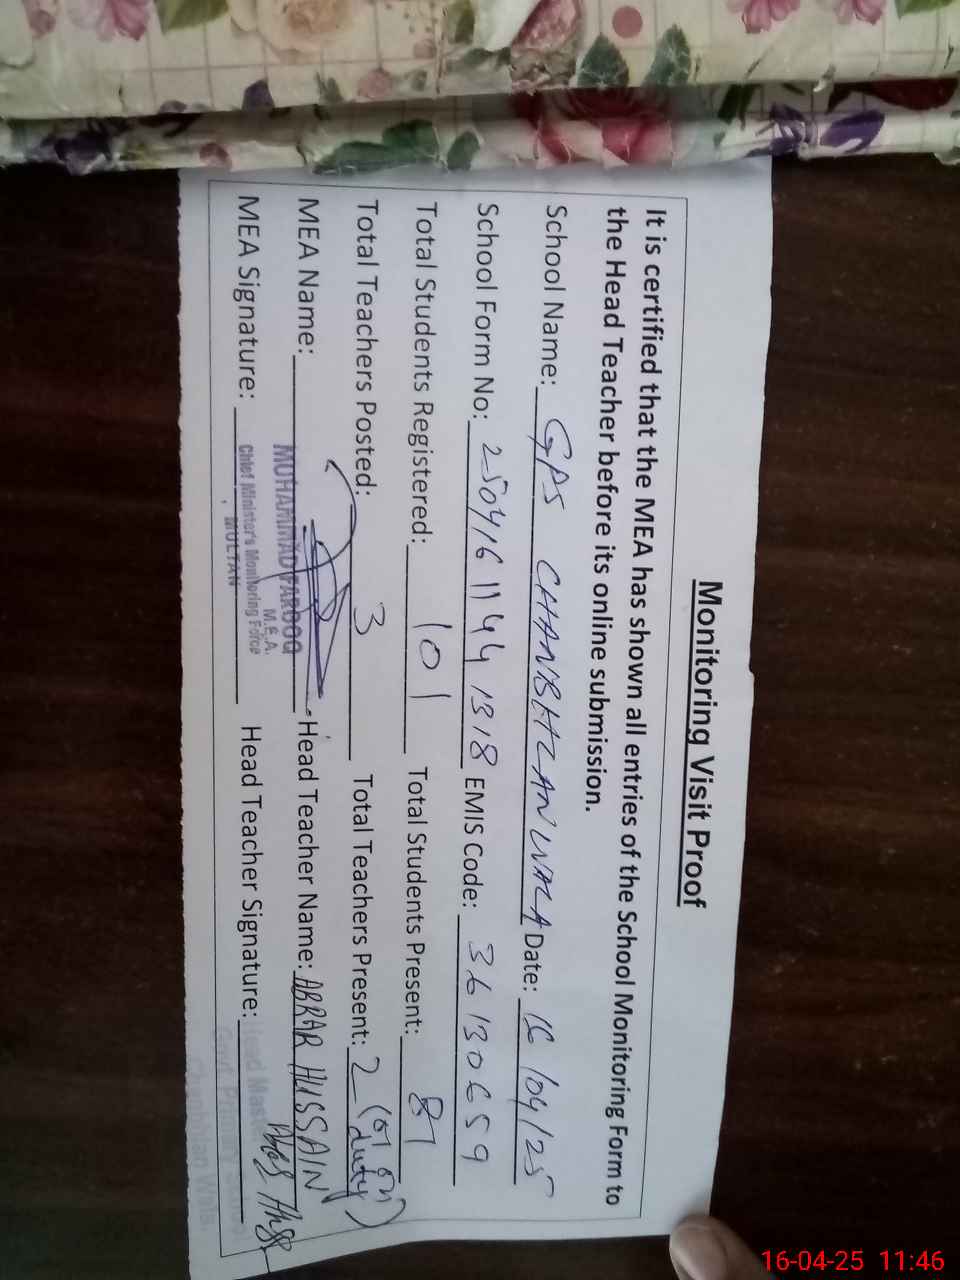 Monitoring Visit Proof
It is certified that the MEA has shown all entries of the School Monitoring Form to
the Head Teacher before its online submission.
School Name: GPS CHANBHZANWALA Date: 16/04/25
School Form No: 25041611441318 EMIS Code: 36130659
Total Students Registered: 101 Total Students Present: 81
Total Teachers Posted: 3 Total Teachers Present: 2 (01 on duty)
MEA Name: Head Teacher Name: ABRAR HUSSAIN
MUHAMMAD FAROOQ
M.E.A.
MEA Signature: Head Teacher Signature:
Chief Minister's Monitoring Force
, MULTAN
Head
Govt. Primary
16-04-25 11:46